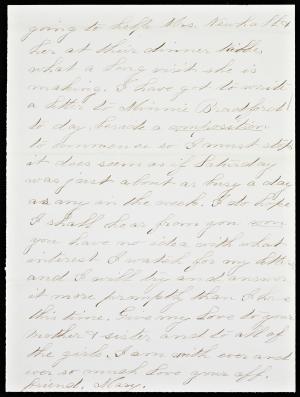 going to help Mrs. Newhall &
her at their dinner table,
what a long visit she is
making. I have got to write
a letter to Minnie Bradford
to day, beside a composition
to commence so I must stop
it does seem as if Saturday
was just about as busy a day
as any in the week. I do hope
I shall hear from you soon
you have no idea with what
interest I watch for my letters
and I will try and answer
it more promptly than I have
this time. Give my love to your
mother & sister and to all of
the girls. I am with ever and
ever so much love your aff.
friend, Mary.